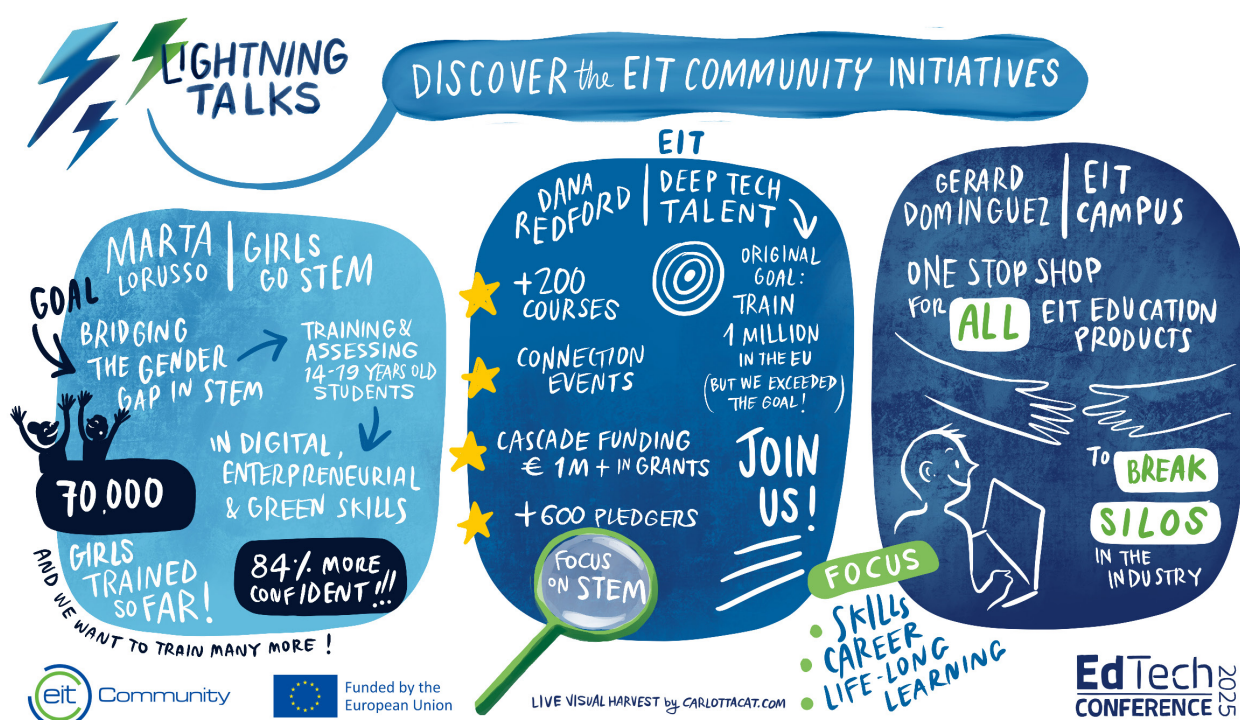 LIGHTNING
TALKS
DISCOVER the EIT COMMUNITY INITIATIVES
MARTA
LORUSSO
GIRLS
GO STEM
GOAL
BRIDGING
THE GENDER
GAP IN STEM
TRAINING &
ASSESSING
14-19 YEARS OLD
STUDENTS
IN DIGITAL,
ENTERPRENEURIAL
& GREEN SKILLS
70.000
GIRLS
TRAINED
SO FAR!
84% MORE
CONFIDENT!!!
AND WE WANT TO TRAIN MANY MORE!
EIT
DANA
REDFORD
DEEP TECH
TALENT
+200
COURSES
CONNECTION
EVENTS
CASCADE FUNDING
€ 1M + IN GRANTS
+600 PLEDGERS
ORIGINAL
GOAL:
TRAIN
1 MILLION
IN THE EU
(BUT WE EXCEEDED
THE GOAL!)
JOIN
US!
FOCUS
ON STEM
GERARD
DOMINGUEZ
EIT
CAMPUS
ONE STOP SHOP
FOR ALL EIT EDUCATION
PRODUCTS
TO BREAK
SILOS
IN THE
INDUSTRY
FOCUS
• SKILLS
• CAREER
• LIFE-LONG
LEARNING
eit Community
Funded by the
European Union
LIVE VISUAL HARVEST by CARLOTTACAT.COM
EdTech
CONFERENCE 2025